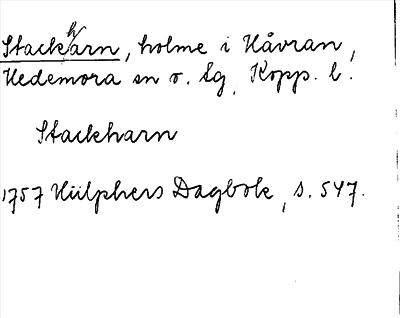 Stackharn, holme i Håvran,
Hedemora sn o. Lg, Kopp. l.
Stackharn
1757 Hülphers Dagbok, s. 547.